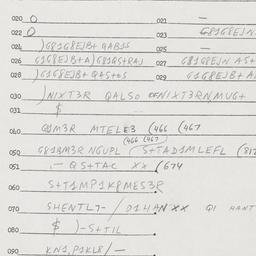 020 O 021 —
022 O 023 G81G8EJN
024 )G81G8EJB+ QABJS 025 —
026 G1G8EJB+A)G81QS+RAJ 027 G81G8EJN AS+
028 )G1G8EJB+ QAS+OS 029 G1G8EJB+A
030 )NIXT3R QALSO OFNIXT3RN,MUG+
031 $
040 Q1M3R MTELE3 (466 (467
(466 (467
050 G81BM3R NGUPL (S+TAD1MLEFL (817
051 — QS+TAC XX (674
060 S+T1MP1K8MES3R
070 SHENTL7- / D1HANXX Q1 HANT
080 $ )-S+TIL
090 KN1,P1KL8/—